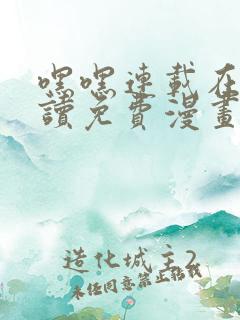 嘿嘿連載在
讀免費漫畫
造化城主2
未经同意禁止转载